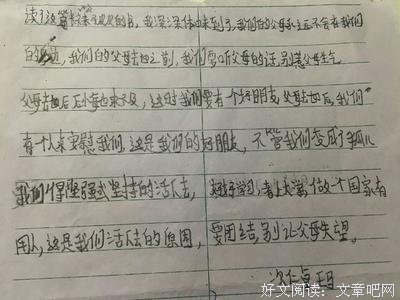 读了这篇
的书，我深深体会到了，我们的父母永远不会在我们
的身边，我们的父母去世之前，我们要听父母的话，别惹父母生气
父母去世后后悔也来不及，这时我们要有个好朋友，父母去世后，我们
有个人来安慰我们，这是我们的好朋友，不管我们变成了孤儿
我们得坚强或坚持的活下去，好好学习，考上大学，做一个国家有
用人，这是我们活下去的原因，要团结，别让父母失望。
次仁卓玛
好文阅读：文章吧网